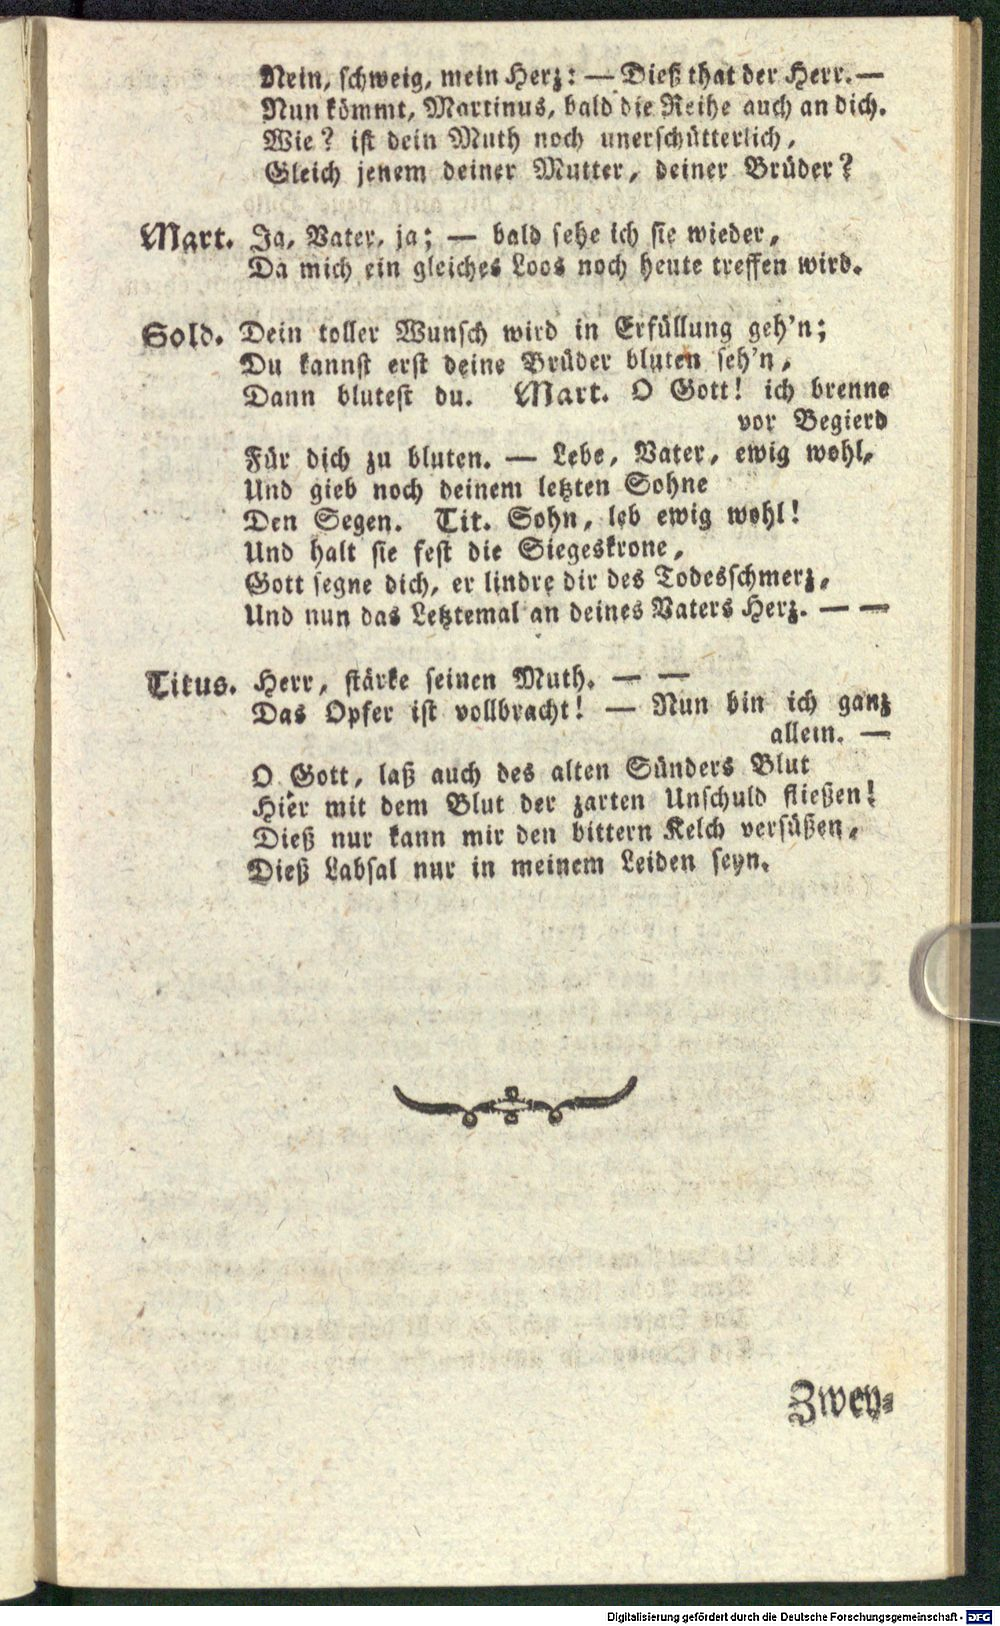 Nein, schweig, mein Herz: — Dieß that der Herr. —
Nun kömmt, Martinus, bald die Reihe auch an dich.
Wie? ist dein Muth noch unerschütterlich,
Gleich jenem deiner Mutter, deiner Brüder?
Mart. Ja, Vater, ja; — bald sehe ich sie wieder,
Da mich ein gleiches Loos noch heute treffen wird.
Sold. Dein toller Wunsch wird in Erfüllung geh'n;
Du kannst erst deine Brüder bluten seh'n,
Dann blutest du. Mart. O Gott! ich brenne
vor Begierd
Für dich zu bluten. — Lebe, Vater, ewig wohl,
Und gieb noch deinem letzten Sohne
Den Segen. Tit. Sohn, leb ewig wohl!
Und halt sie fest die Siegeskrone,
Gott segne dich, er lindre dir des Todesschmerz,
Und nun das Letztemal an deines Vaters Herz. — —
Titus. Herr, stärke seinen Muth. — —
Das Opfer ist vollbracht! — Nun bin ich ganz
allein. —
O Gott, laß auch des alten Sünders Blut
Hier mit dem Blut der zarten Unschuld fließen!
Dieß nur kann mir den bittern Kelch versüßen,
Dieß Labsal nur in meinem Leiden seyn.
Zwey-
Digitalisierung gefördert durch die Deutsche Forschungsgemeinschaft - DFG